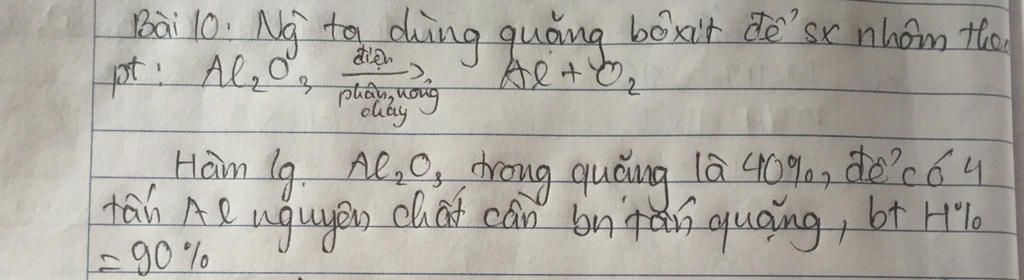 Bài 10: Ng` ta dùng quặng bôxit để sx nhôm theo
pt: Al₂O₃ điện phân nóng chảy → Al + O₂
Hàm lg. Al₂O₃ trong quặng là 40%, để có 4
tấn Al nguyên chất cần bn tấn quặng, bt H%
= 90%